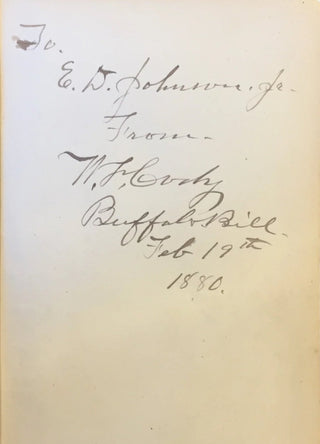 To.
E. D. Johnson. Jr-
From-
W. F. Cody
Buffalo Bill-
Feb 19th
1880.